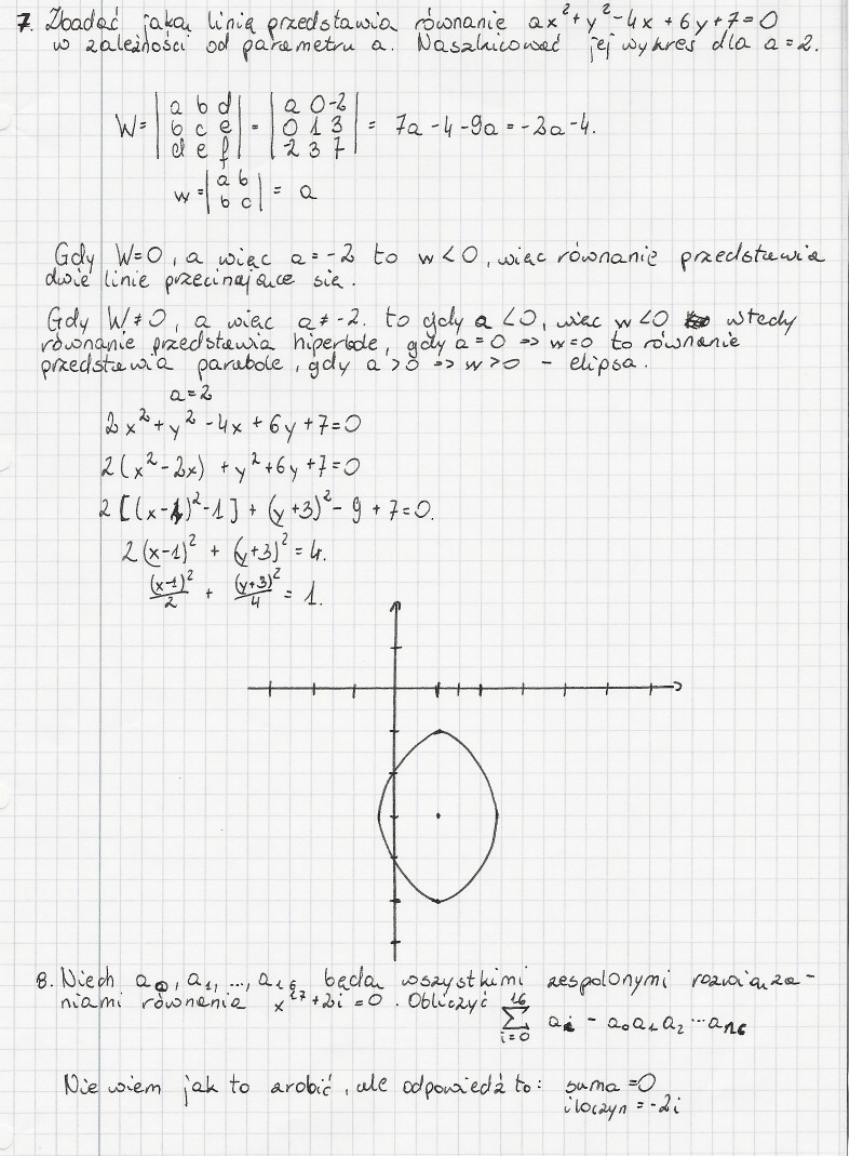 7. Zbadać jaką linię przedstawia równanie ax²+y²-4x+6y+7=0
w zależności od parametru a. Naszkicować jej wykres dla a=2.
W= |a b d| = |a 0 -2| = 7a -4 -9a = -2a-4.
|b c e| |0 1 3|
|d e f| |-2 3 7|
w = |a b| = a
|b c|
Gdy W=0, a więc a=-2 to w<0, więc równanie przedstawia
dwie linie przecinające się.
Gdy W≠0, a więc a≠-2. to gdy a<0, więc w<0 wtedy
równanie przedstawia hiperbolę, gdy a=0 => w=0 to równanie
przedstawia parabolę, gdy a>0 => w>0 - elipsa.
a=2
2x²+y²-4x+6y+7=0
2(x²-2x)+y²+6y+7=0
2[(x-1)²-1]+(y+3)²-9+7=0.
2(x-1)² + (y+3)² = 4.
(x-1)²/2 + (y+3)²/4 = 1.
8. Niech a₀, a₁, ..., a₁₆ będą wszystkimi zespolonymi rozwiąza-
niami równania x¹⁷+2i=0. Obliczyć
16
∑ aᵢ - a₀a₁a₂...a₁₆
i=0
Nie wiem jak to zrobić, ale odpowiedź to: suma =0
iloczyn = -2i